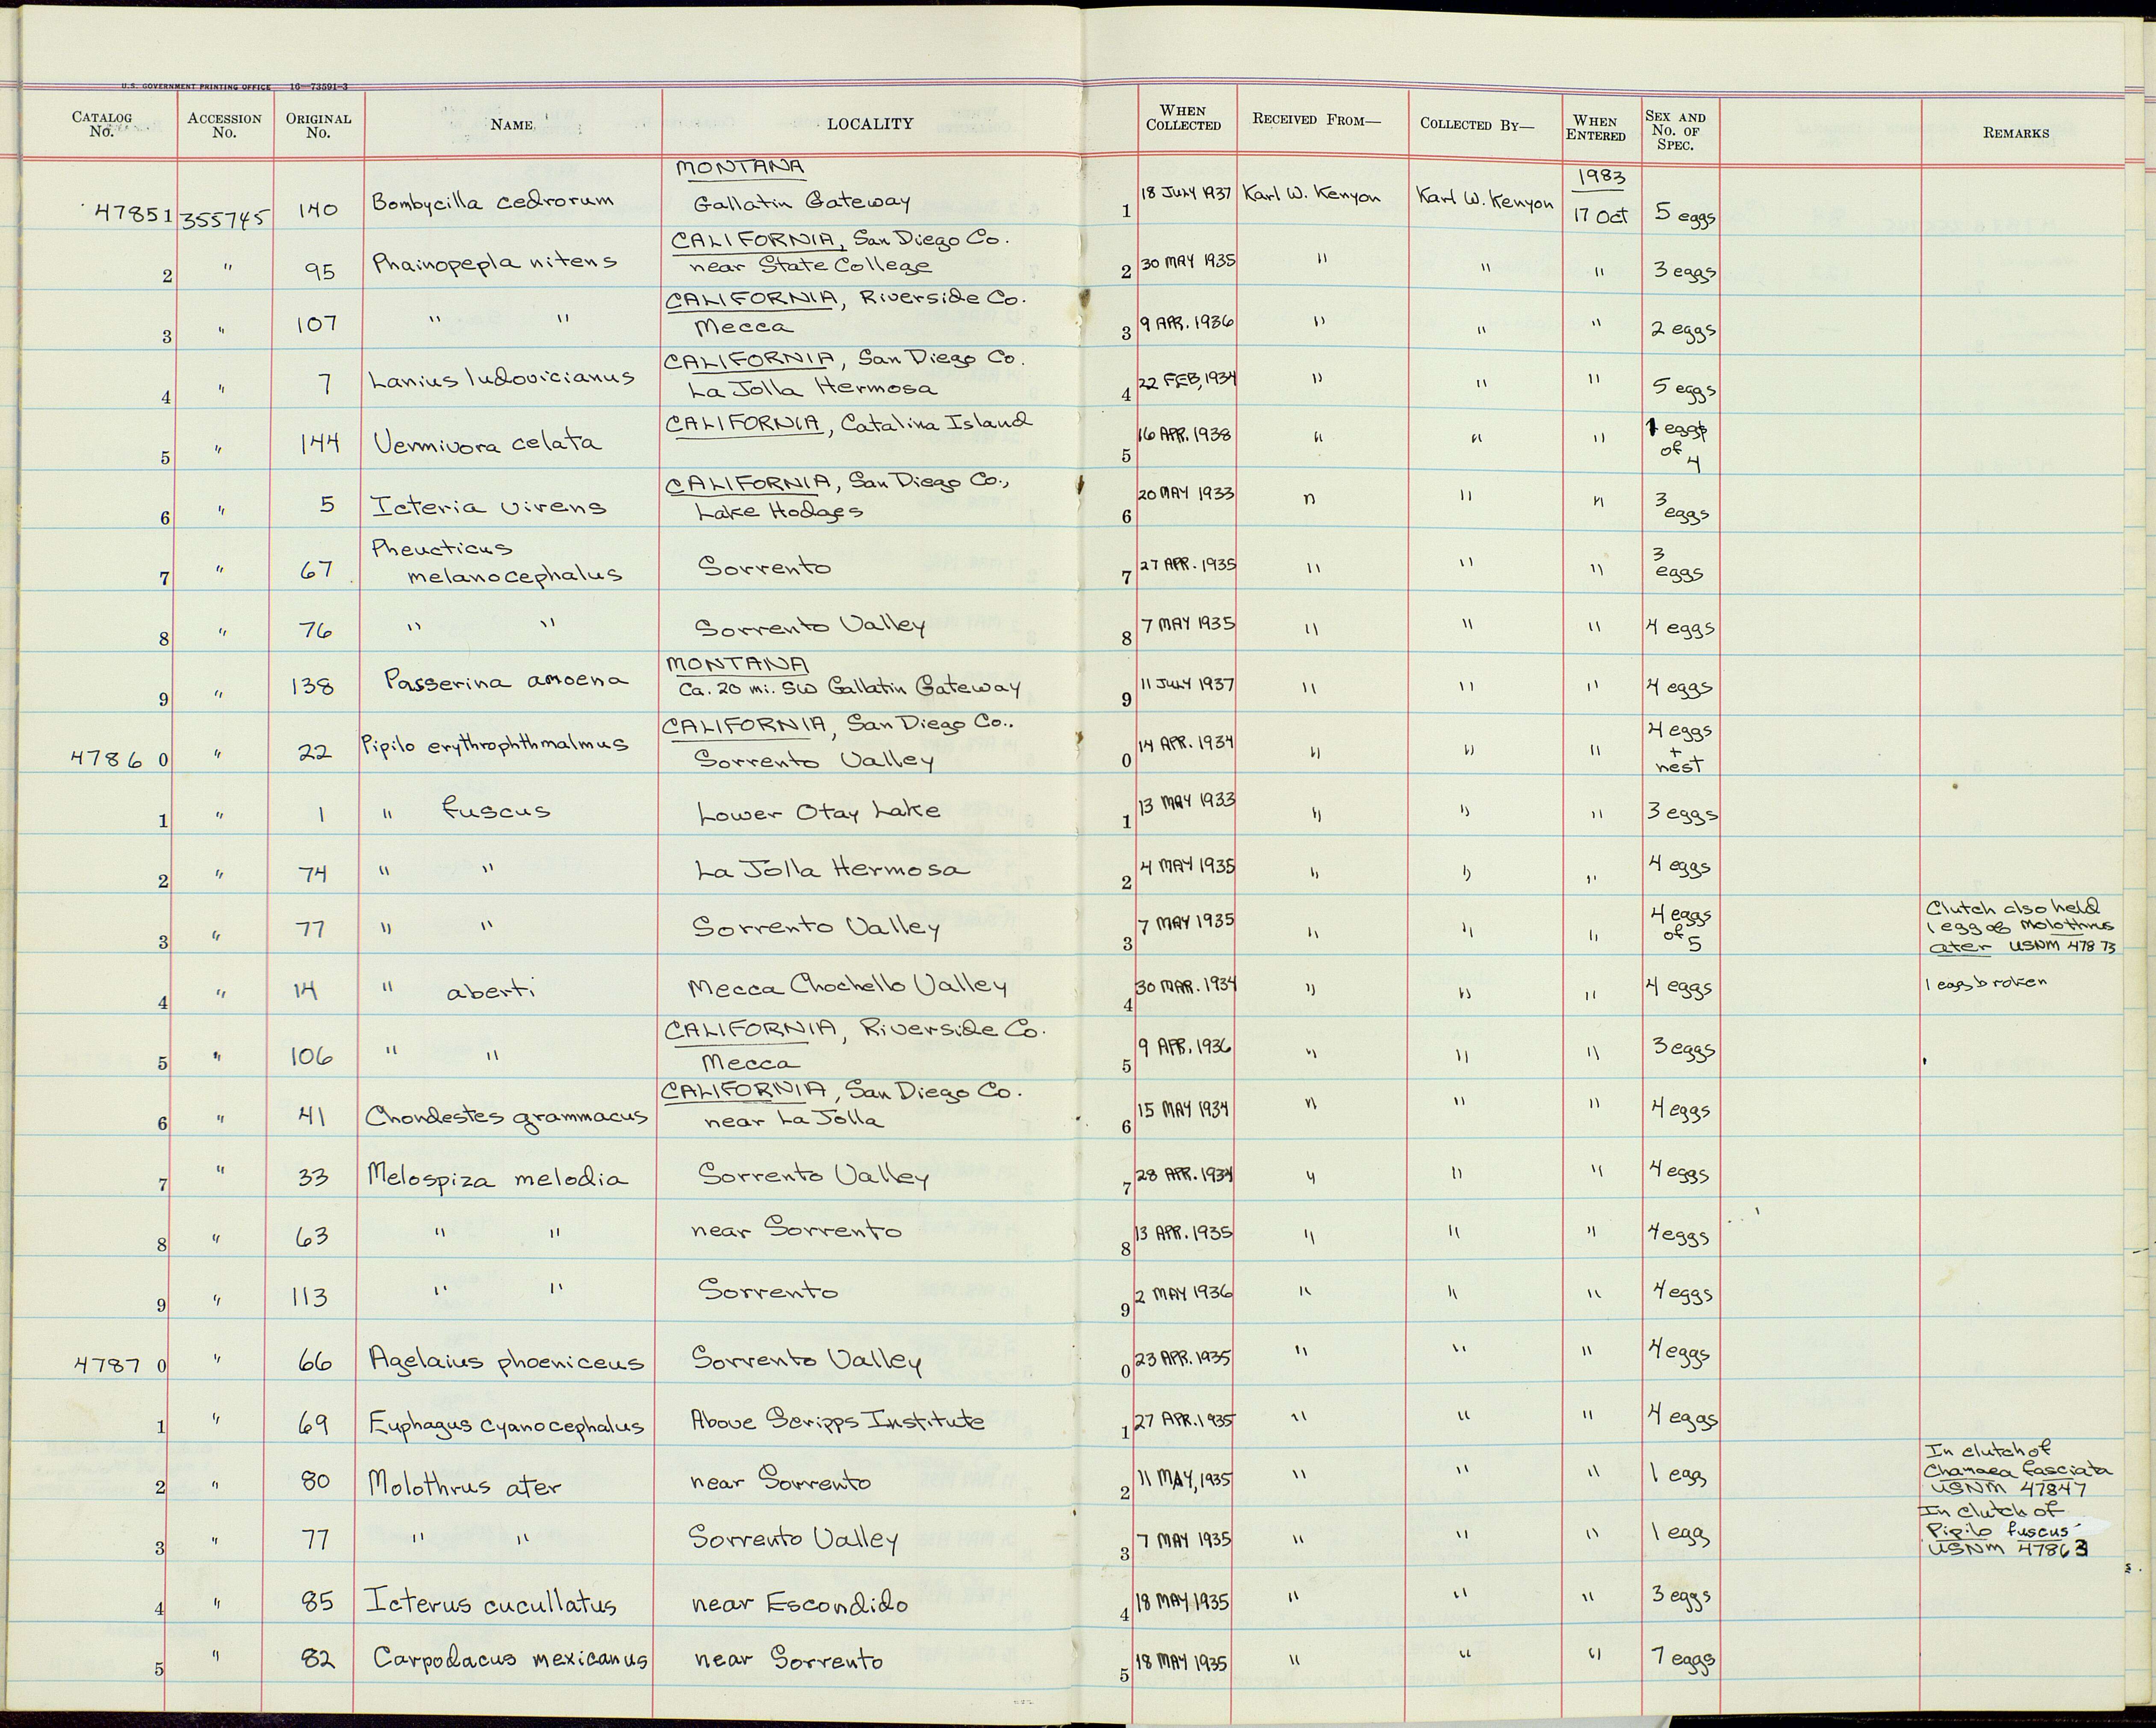 U.S. GOVERNMENT PRINTING OFFICE 16—73591-3
CATALOG No. ACCESSION No. ORIGINAL No. NAME LOCALITY WHEN COLLECTED RECEIVED FROM— COLLECTED BY— WHEN ENTERED SEX AND No. OF SPEC. REMARKS
MONTANA 1983
47851 355745 140 Bombycilla cedrorum Gallatin Gateway 1 18 JULY 1937 Karl W. Kenyon Karl W. Kenyon 17 Oct 5 eggs
CALIFORNIA, San Diego Co.
2 " 95 Phainopepla nitens near State College 2 30 MAY 1935 " " " 3 eggs
CALIFORNIA, Riverside Co.
3 " 107 " " Mecca 3 9 APR. 1936 " " " 2 eggs
CALIFORNIA, San Diego Co.
4 " 7 Lanius ludovicianus La Jolla Hermosa 4 22 FEB, 1934 " " " 5 eggs
CALIFORNIA, Catalina Island
5 " 144 Vermivora celata 5 16 APR. 1938 " " " 1 egg of 4
CALIFORNIA, San Diego Co.,
6 " 5 Icteria virens Lake Hodges 6 20 MAY 1933 " " " 3 eggs
Pheucticus
7 " 67 melanocephalus Sorrento 7 27 APR. 1935 " " " 3 eggs
8 " 76 " " Sorrento Valley 8 7 MAY 1935 " " " 4 eggs
MONTANA
9 " 138 Passerina amoena Ca. 20 mi. SW Gallatin Gateway 9 11 JULY 1937 " " " 4 eggs
CALIFORNIA, San Diego Co..
4786 0 " 22 Pipilo erythrophthmalmus Sorrento Valley 0 14 APR. 1934 " " " 4 eggs + nest
1 " 1 " fuscus Lower Otay Lake 1 13 MAY 1933 " " " 3 eggs
2 " 74 " " La Jolla Hermosa 2 4 MAY 1935 " " " 4 eggs
3 " 77 " " Sorrento Valley 3 7 MAY 1935 " " " 4 eggs of 5 Clutch also held
1 egg of Molothrus
ater USNM 47873
4 " 14 " aberti Mecca Chochello Valley 4 30 MAR. 1934 " " " 4 eggs 1 egg broken
CALIFORNIA, Riverside Co.
5 " 106 " " Mecca 5 9 APR. 1936 " " " 3 eggs
CALIFORNIA, San Diego Co.
6 " 41 Chondestes grammacus near La Jolla 6 15 MAY 1934 " " " 4 eggs
7 " 33 Melospiza melodia Sorrento Valley 7 28 APR. 1934 " " " 4 eggs
8 " 63 " " near Sorrento 8 13 APR. 1935 " " " 4 eggs
9 " 113 " " Sorrento 9 2 MAY 1936 " " " 4 eggs
4787 0 " 66 Agelaius phoeniceus Sorrento Valley 0 23 APR. 1935 " " " 4 eggs
1 " 69 Euphagus cyanocephalus Above Scripps Institute 1 27 APR. 1935 " " " 4 eggs
2 " 80 Molothrus ater near Sorrento 2 11 MAY, 1935 " " " 1 egg In clutch of
Chamaea fasciata
USNM 47847
3 " 77 " " Sorrento Valley 3 7 MAY 1935 " " " 1 egg In clutch of
Pipilo fuscus
USNM 47863
4 " 85 Icterus cucullatus near Escondido 4 18 MAY 1935 " " " 3 eggs
5 " 82 Carpodacus mexicanus near Sorrento 5 18 MAY 1935 " " " 7 eggs